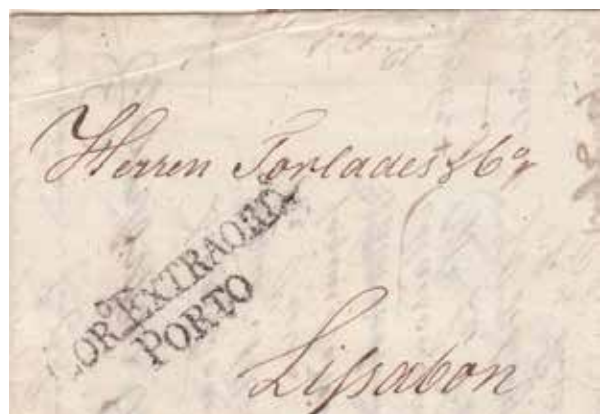 Herren Torlades & Cº
CORº EXTRAORDº
PORTO
Lissabon